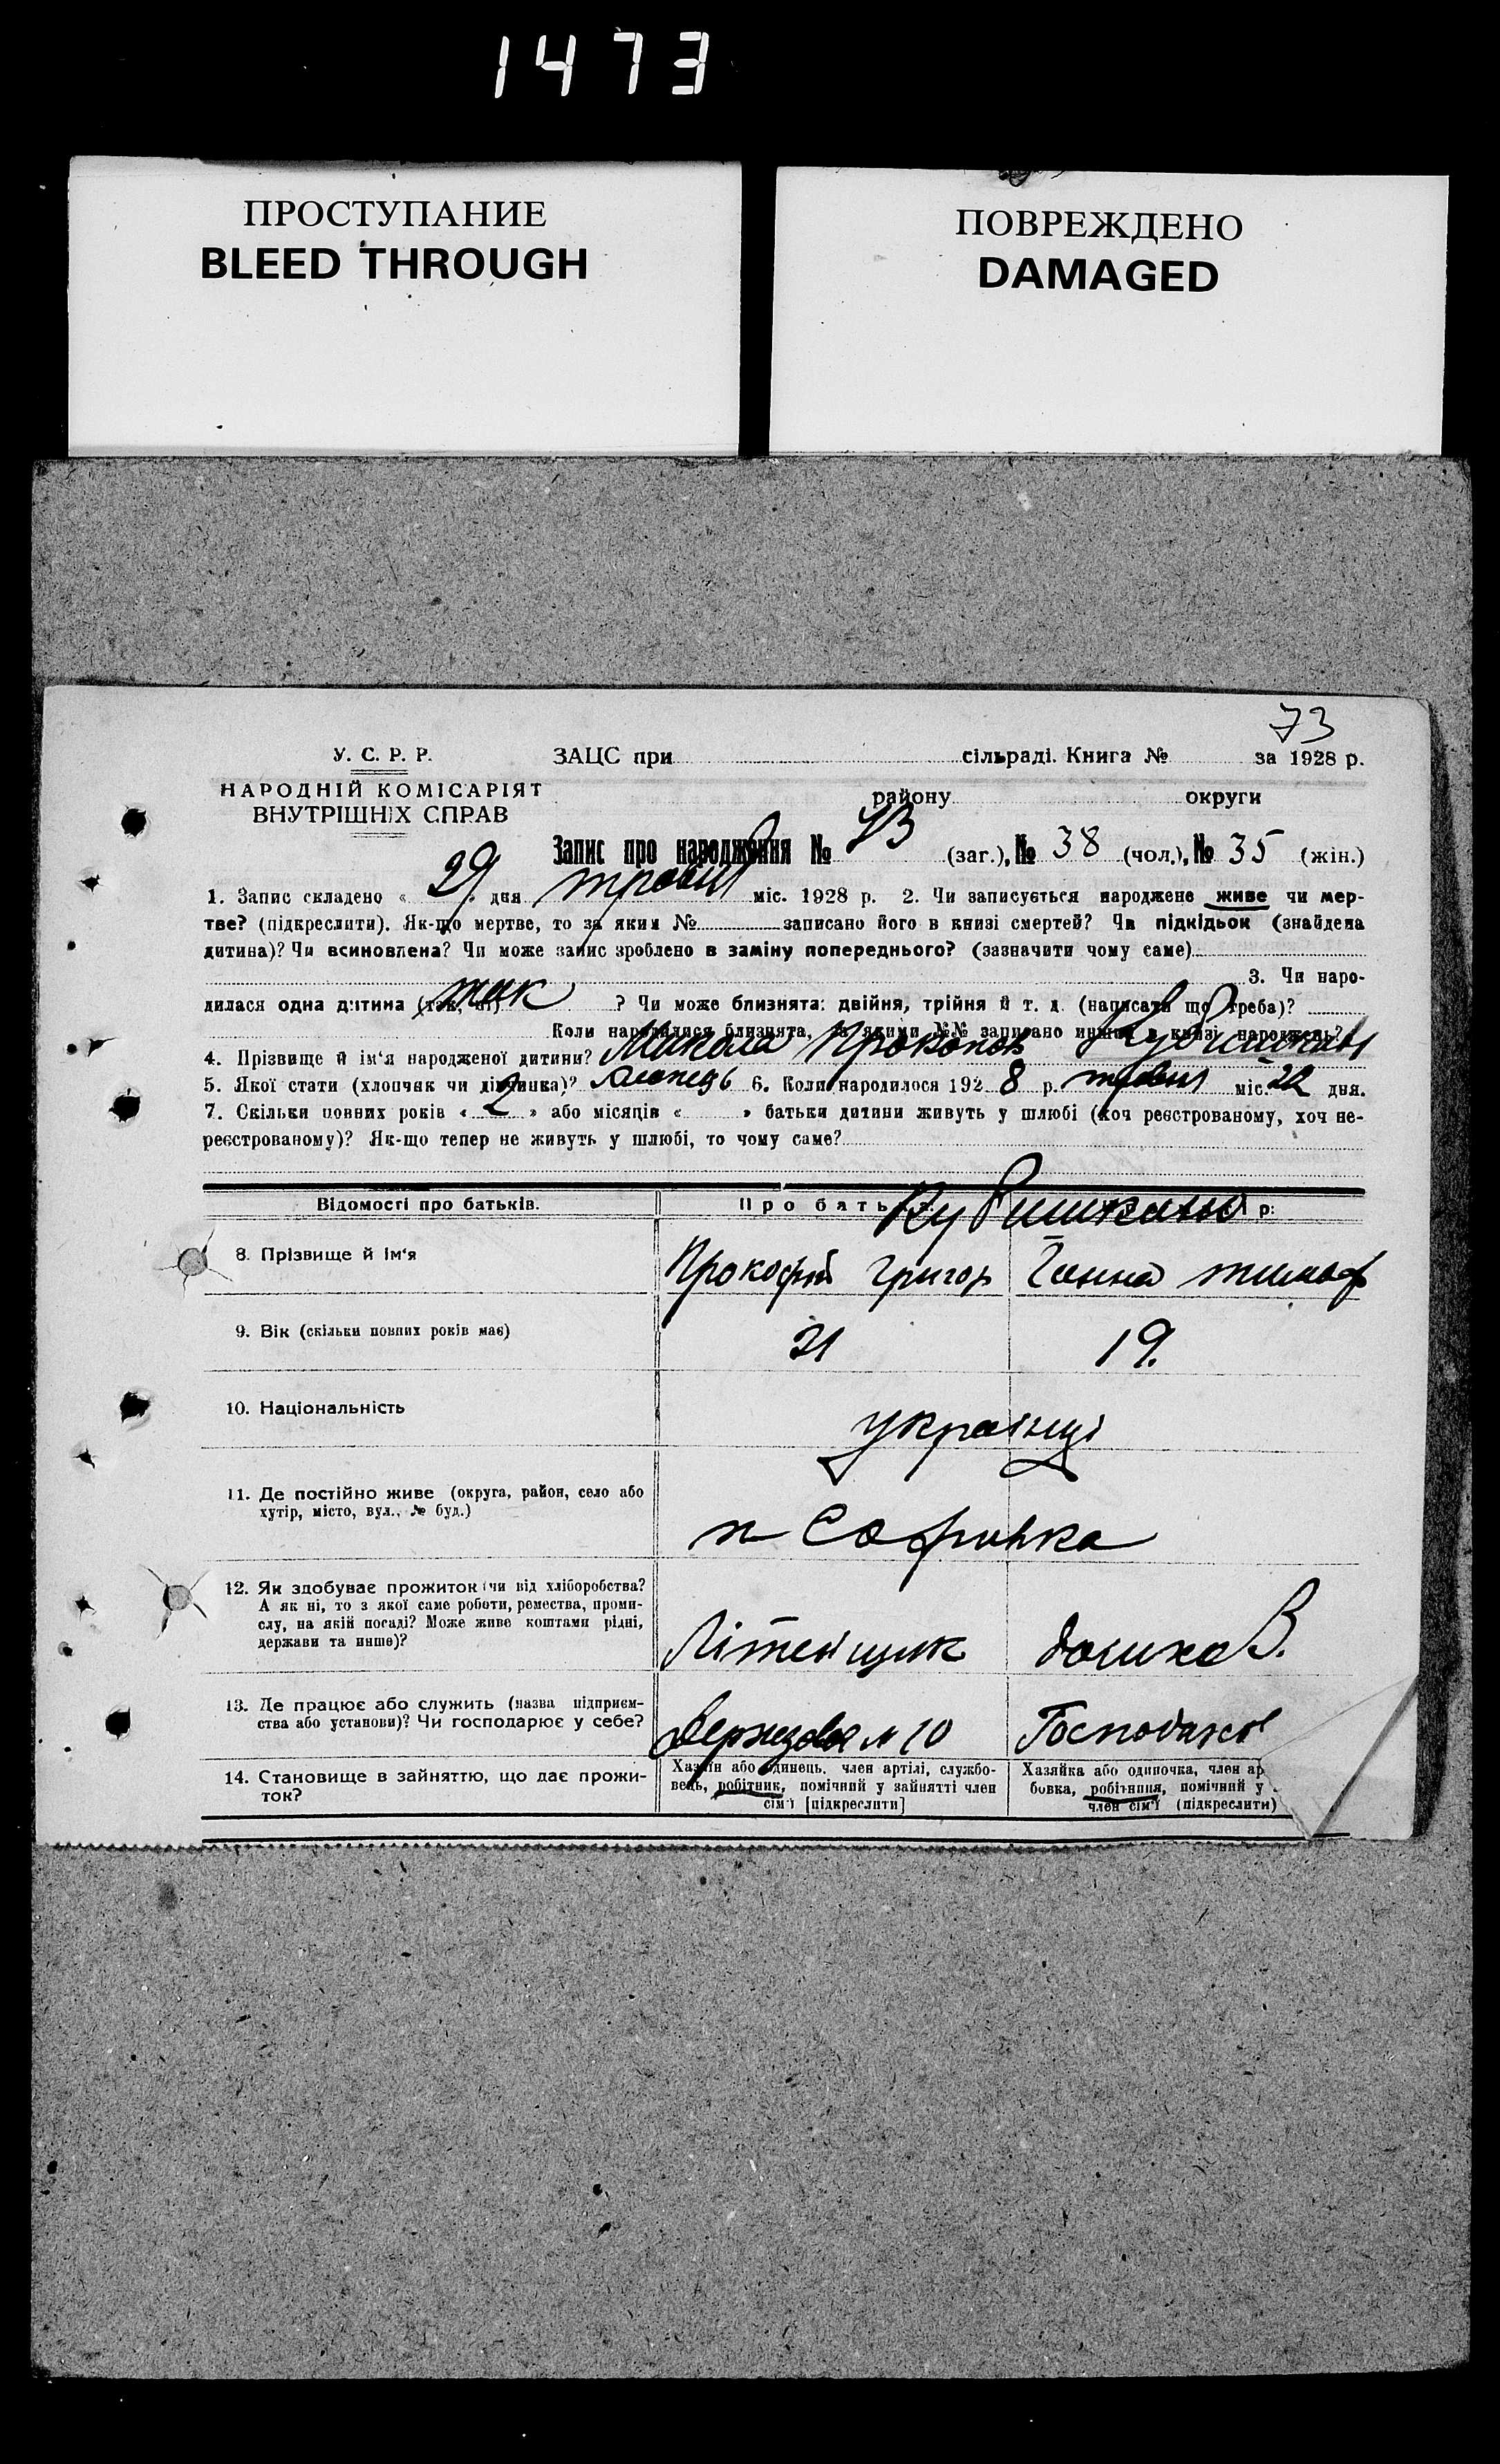 1473
ПРОСТУПАНИЕ
BLEED THROUGH
ПОВРЕЖДЕНО
DAMAGED
73
У. С. Р. Р.
НАРОДНІЙ КОМІСАРІЯТ
ВНУТРІШНІХ СПРАВ
ЗАЦС при сільраді. Книга № за 1928 р.
району округи
Запис про народження № 73 (заг.), № 38 (чол.), № 35 (жін.)
1. Запис складено « 29 » дня травня міс. 1928 р. 2. Чи записується народжене живе чи мер-
тве? (підкреслити). Як-що мертве, то за яким № записано його в книзі смертей? Чи підкідьок (знайдена
дитина)? Чи всиновлена? Чи може запис зроблено в заміну попереднього? (зазначити чому саме)
3. Чи наро-
дилася одна дитина (так, ні) так ? Чи може близнята: двійня, трійня й т. д. (написати що треба)?
Коли народилися близнята, за якими №№ записано инших в книзі народжень?
4. Прізвище й ім'я народженої дитини? Микола Прокопов
5. Якої стати (хлопчик чи дівчинка)? Хлопець 6. Коли народилося 192 8 р. травня міс. 22 дня.
7. Скільки повних років « 2 » або місяців « » батьки дитини живуть у шлюбі (хоч реєстрованому, хоч не-
реєстрованому)? Як-що тепер не живуть у шлюбі, то чому саме?
Відомості про батьків.
Про бать
8. Прізвище й ім'я
Прокофій Григор
Ганна
9. Вік (скільки повних років має)
21
19.
10. Національність
українці
11. Де постійно живе (округа, район, село або
хутір, місто, вул., № буд.)
Софиівка
12. Як здобуває прожиток (чи від хліборобства?
А як ні, то з якої саме роботи, ремества, проми-
слу, на якій посаді? Може живе коштами рідні,
держави та инше)?
Літейщик
13. Де працює або служить (назва підприєм-
ства або установи)? Чи господарює у себе?
№ 10
14. Становище в зайняттю, що дає прожи-
ток?
Хазяїн або одинець, член артілі, службо-
вець, робітник, помічний у зайнятті член
сім'ї [підкреслити]
Хазяйка або одиночка, член ар
бовка, робітниця, помічний у
член сім'ї (підкреслити)